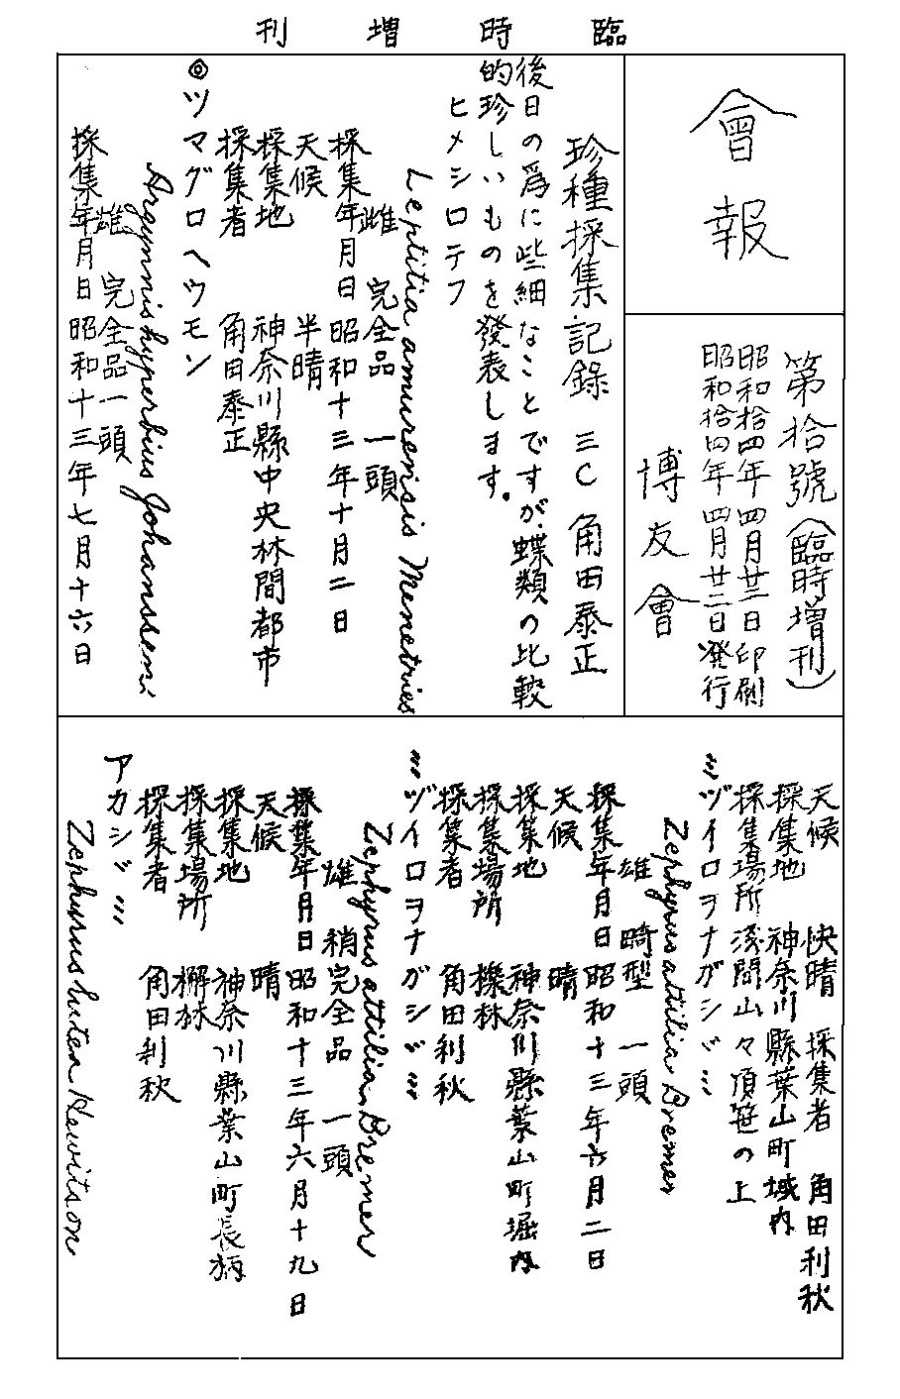 臨時増刊
會報
第拾號（臨時増刊）
昭和拾四年四月廿二日印刷
昭和拾四年四月廿二日発行
博友會
珍種採集記録 三C 角田泰正
後日の爲に些細なことですが、蝶類の比較
的珍しいものを發表します。
ヒメシロテフ
Leptitia amurensis Menetries
雌 完全品 一頭
採集年月日 昭和十三年十月二日
天候 半晴
採集地 神奈川縣中央林間都市
採集者 角田泰正
◎ツマグロヘウモン
Argynnis hyperbius Johanssen
雄 完全品一頭
採集年月日 昭和十三年七月十六日
天候 快晴 採集者 角田利秋
採集地 神奈川縣葉山町城内
採集場所 浅間山々頂笹の上
ミヅイロヲナガシヾミ
Zephyrus attilia Bremer
雄 畸型 一頭
採集年月日 昭和十三年六月二日
天候 晴
採集地 神奈川縣葉山町堀内
採集場所 櫟林
採集者 角田利秋
ミヅイロヲナガシヾミ
Zephyrus attilia Bremer
雄 稍完全品 一頭
採集年月日 昭和十三年六月十九日
天候 晴
採集地 神奈川縣葉山町長柄
採集場所 櫟林
採集者 角田利秋
アカシヾミ
Zephyrus lutea Hewitson